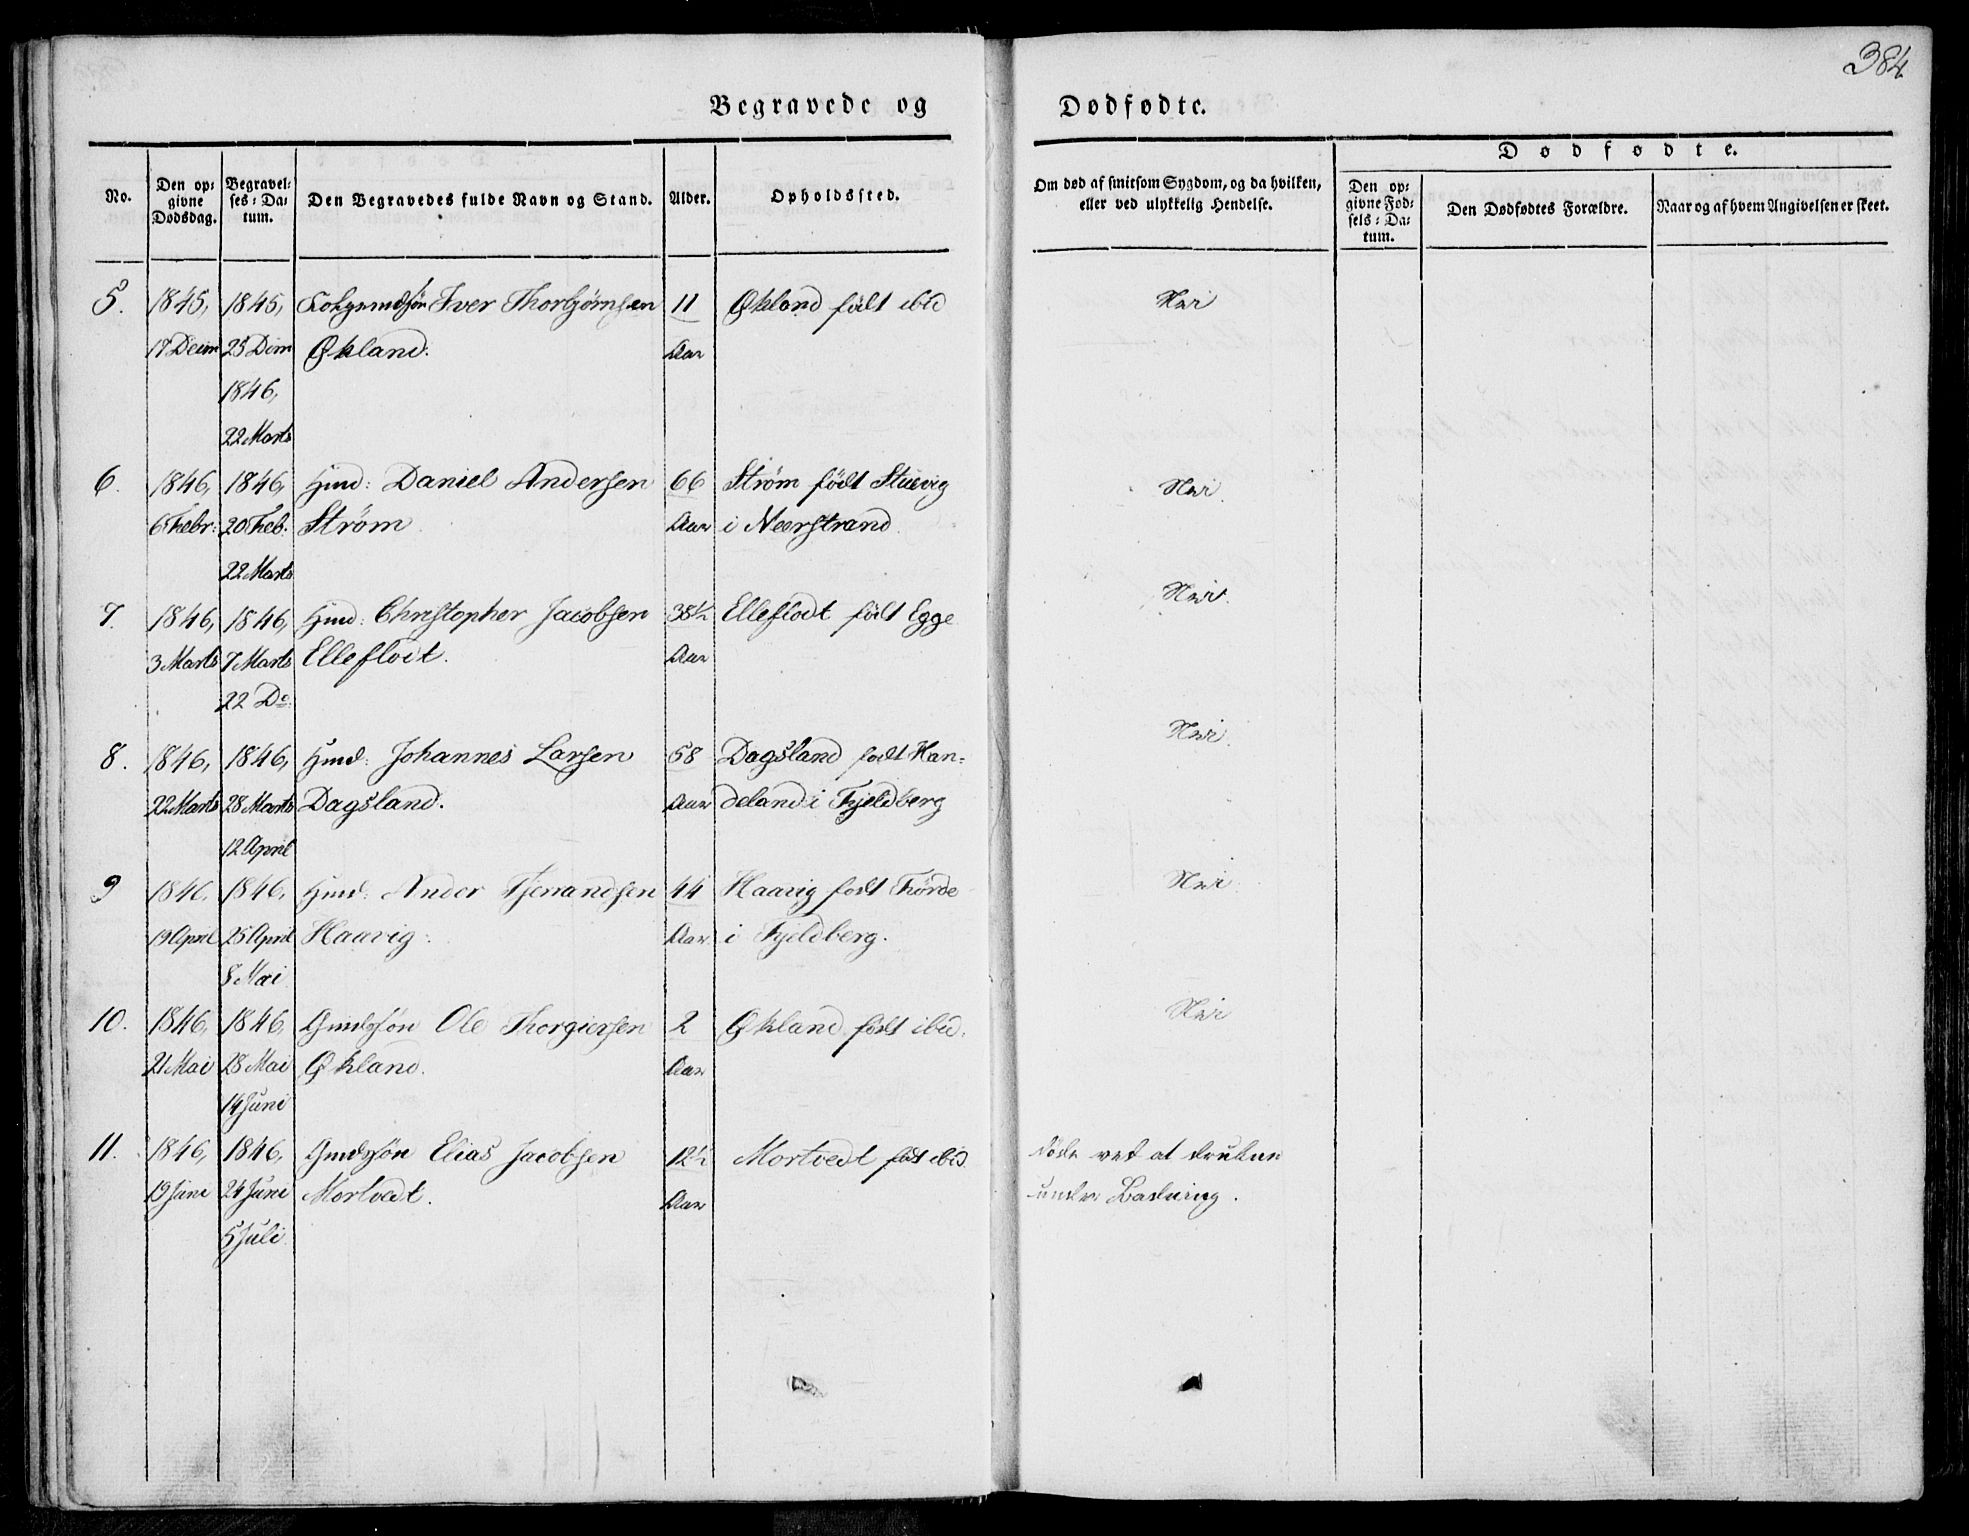 384
Begravede og Dødfødte.
No.
Den op-
givne
Dødsdag.
Begravel-
ses-Da-
tum.
Den Begravedes fulde Navn og Stand.
Alder.
Opholdssted.
Om død af smitsom Sygdom, og da hvilken,
eller ved ulykkelig Hendelse.
Dødfødte.
Den op-
givne Fød-
sels-Da-
tum.
Den Dødfødtes Forældre.
Naar og af hvem Angivelsen er skeet.
5. 1845, 1845, Iver Thorbjørnsen 11 Økland født ibid Nei
17 Decm 25 Dcm Økland. Aar
1846,
22 Marts
6. 1846, 1846, Hmd: Daniel Andersen 66 Strøm født Stuevig Nei.
6 Febr: 20 Feb: Strøm Aar i Neerstrand
22 Marts
7. 1846, 1846, Hmd: Christopher Jacobsen 38½ Elleflodt født Egge Nei.
3 Marts 7 Marts Ellefloet. Aar
22 Do
8. 1846, 1846, Hmd: Johannes Larsen 58 Dagsland født Han- Nei.
22 Marts 28 Marts Dagsland. Aar deland i Fjeldberg
12 April
9 1846. 1846, Hmd: Ander 44 Haavig født Førde Nei
19 April 25 April Haavig. Aar i Fjeldberg.
8 Mai
10. 1846, 1846, Gmdssøn Ole Thorgiersen 2 Økland født ibid. Nei
21 Mai 28 Mai Økland. Aar
14 Juni
11. 1846, 1846, Gmdssøn Elias Jacobsen 12½ Mortvedt født ibid døde ved at drukne
19 Juni 24 Juni Mortvedt. Aar under Badning.
5 Juli